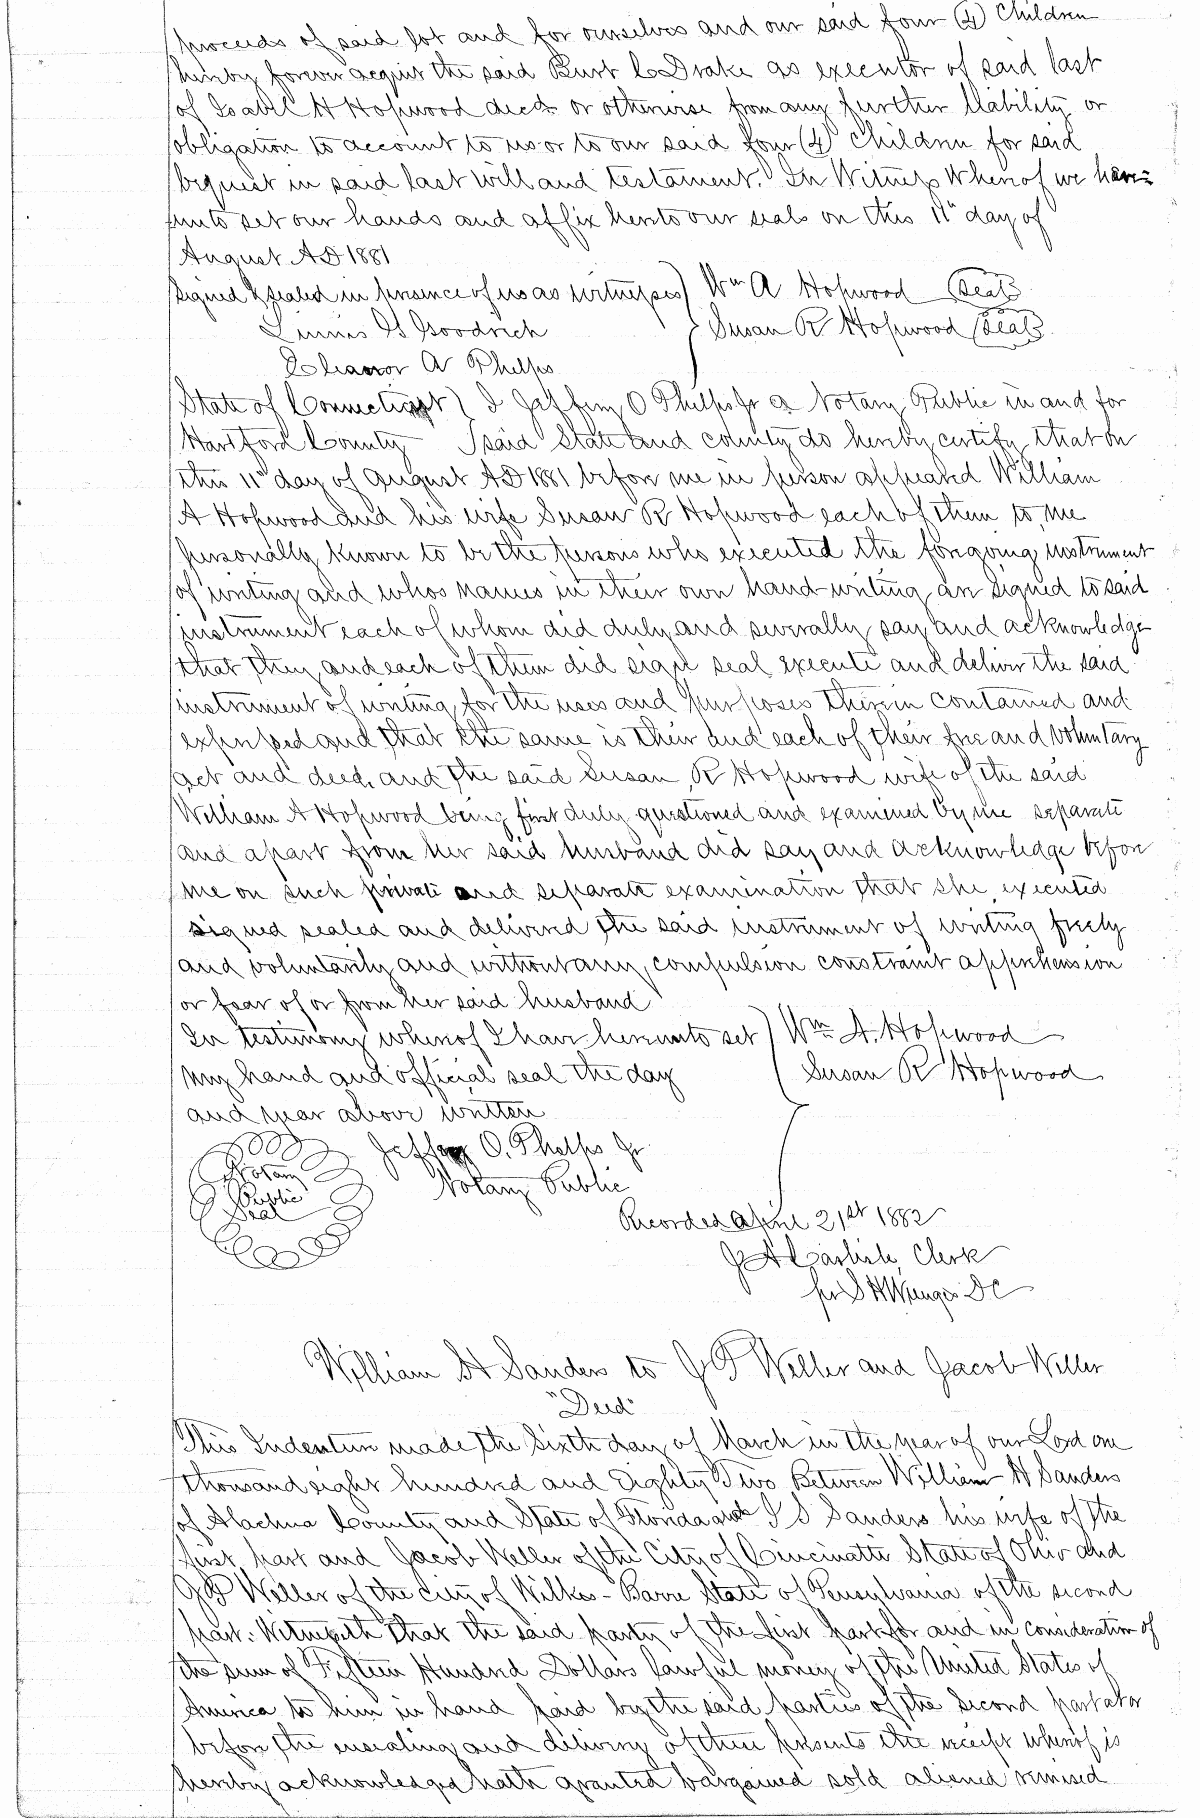 proceeds of said lot and for ourselves and our said four (4) Children
hereby forever acquit the said Burt C Drake as executor of said last
of Isabel H Hopwood decd or otherwise from any further liability or
obligation to account to us or to our said four (4) Children for said
bequest in said last will and testament. In Witness Whereof we have
unto set our hands and affix hereto our seals on this 11" day of
August AD 1881
signed & sealed in presence of us as witnesses) Wm A Hopwood (Seal)
G Goodrich } Susan R Hopwood (Seal)
Eleanor A Phelps
State of Connecticut } I Jeffery O Phelps Jr a Notary Public in and for
Hartford County } said State and county do hereby certify that on
this 11" day of August AD 1881 before me in person appeared William
A Hopwood and his wife Susan R Hopwood each of them to me
personally known to be the persons who executed the foregoing instrument
of writing and whos names in their own hand-writing are signed to said
instrument each of whom did duly and severally say and acknowledge
that they and each of them did sign seal execute and deliver the said
instrument of writing for the uses and purposes therein contained and
expressed and that the same is their and each of their free and voluntary
act and deed, and the said Susan R Hopwood wife of the said
William A Hopwood being first duly questioned and examined by me separate
and apart from her said husband did say and acknowledge before
me on such private and separate examination that she executed
signed sealed and delivered the said instrument of writing freely
and voluntarily and without any compulsion constraint apprehension
or fear of or from her said husband
In testimony whereof I have hereunto set } Wm A. Hopwood
my hand and official seal the day Susan R Hopwood
and year above written
Jeffery O. Phelps Jr
Notary Public
Notary
Public
Seal
Recorded April 21st 1882
J A Carlisle, Clerk
pr S H Wienges DC
William H Sanders to J F Weller and Jacob Weller
"Deed"
This Indenture made the Sixth day of March in the year of our Lord one
thousand eight hundred and Eighty Two Between William H Sanders
of Alachua County and State of Florida and I S Sanders his wife of the
first part and Jacob Weller of the City of Cincinatti State of Ohio and
J F Weller of the City of Wilkes-Barre State of Pensylvania of the second
part. Witnesseth that the said party of the first part for and in consideration of
the sum of Fifteen Hundred Dollars lawful money of the United States of
America to him in hand paid by the said parties of the second part at or
before the ensealing and delivery of these presents the receipt whereof is
hereby acknowledged hath granted bargained sold aliened remised